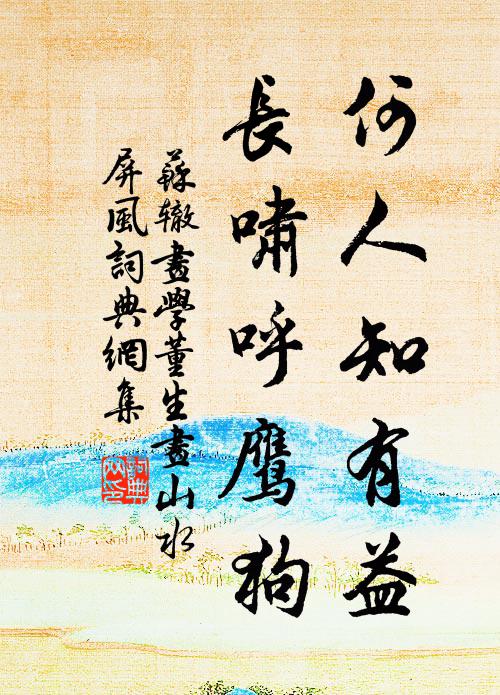 何人知有益
長嘯呼鷹狗
蘇轍畫學董生畫山水
屏風詞典網集